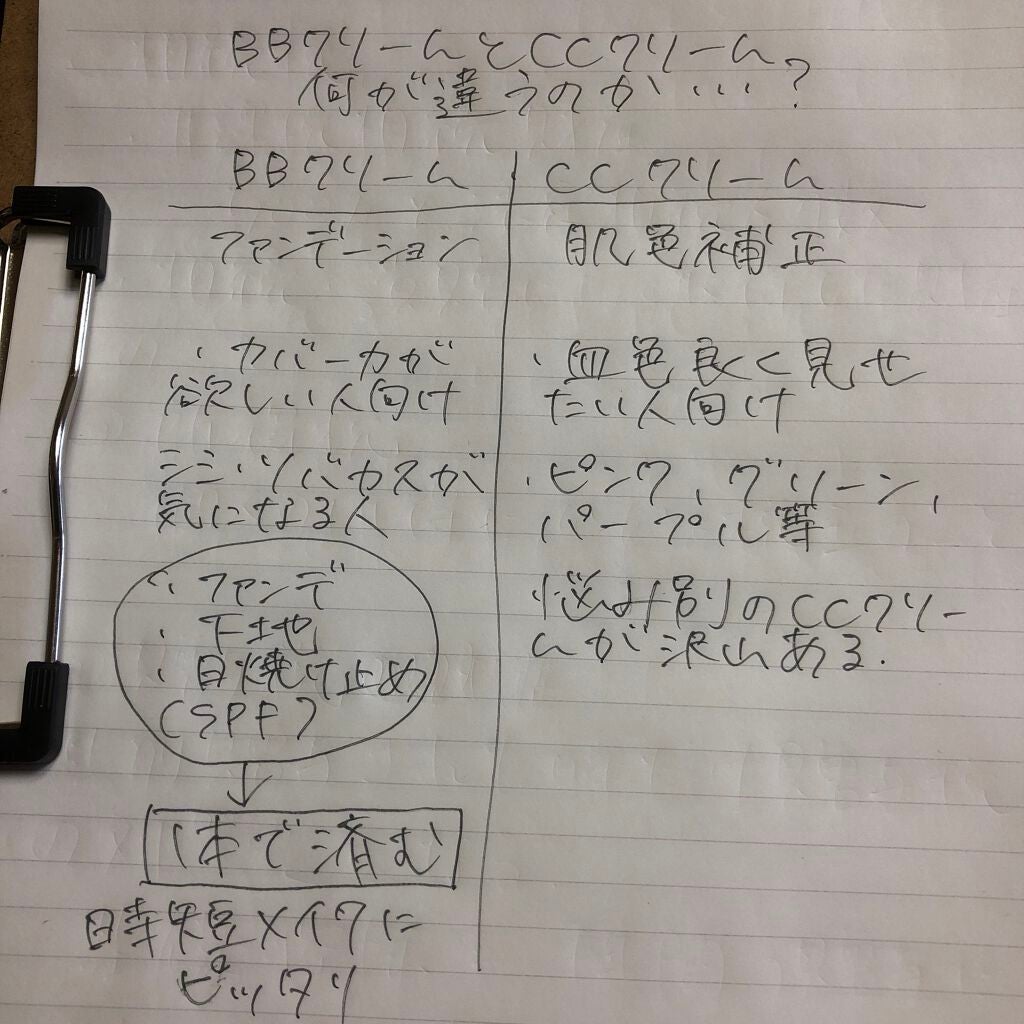 BBクリームとCCクリーム
何が違うのか…?
BBクリーム
ファンデーション
・カバー力が
欲しい人向け
シミ・ソバカスが
気になる人
・ファンデ
・下地
・日焼け止め
(SPF)
1本で済む
時短メイクに
ピッタリ
CCクリーム
肌色補正
・血色良く見せ
たい人向け
・ピンク、グリーン、
パープル等
・悩み別のCCクリー
ムが沢山ある.